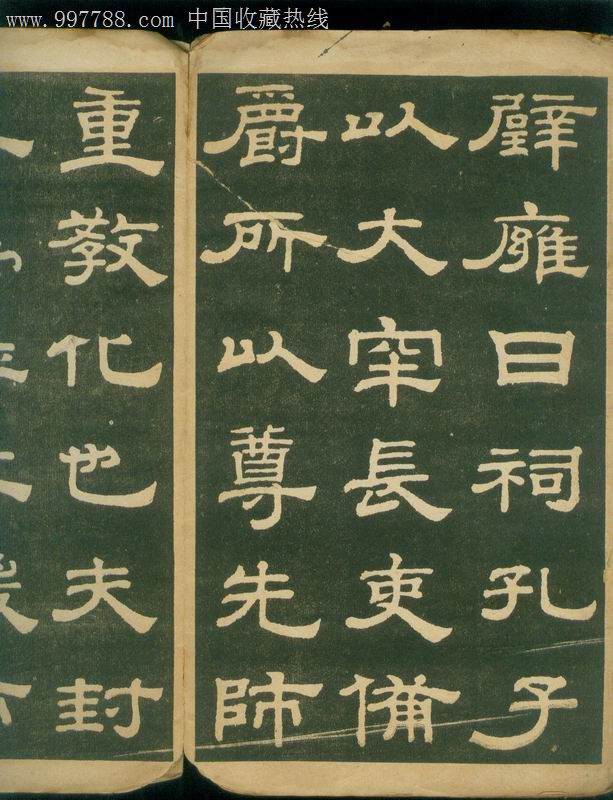 www.997788.com 中国收藏热线
辟廱日祠孔子
以大牢長吏備
爵所以尊先師
重教化也夫封